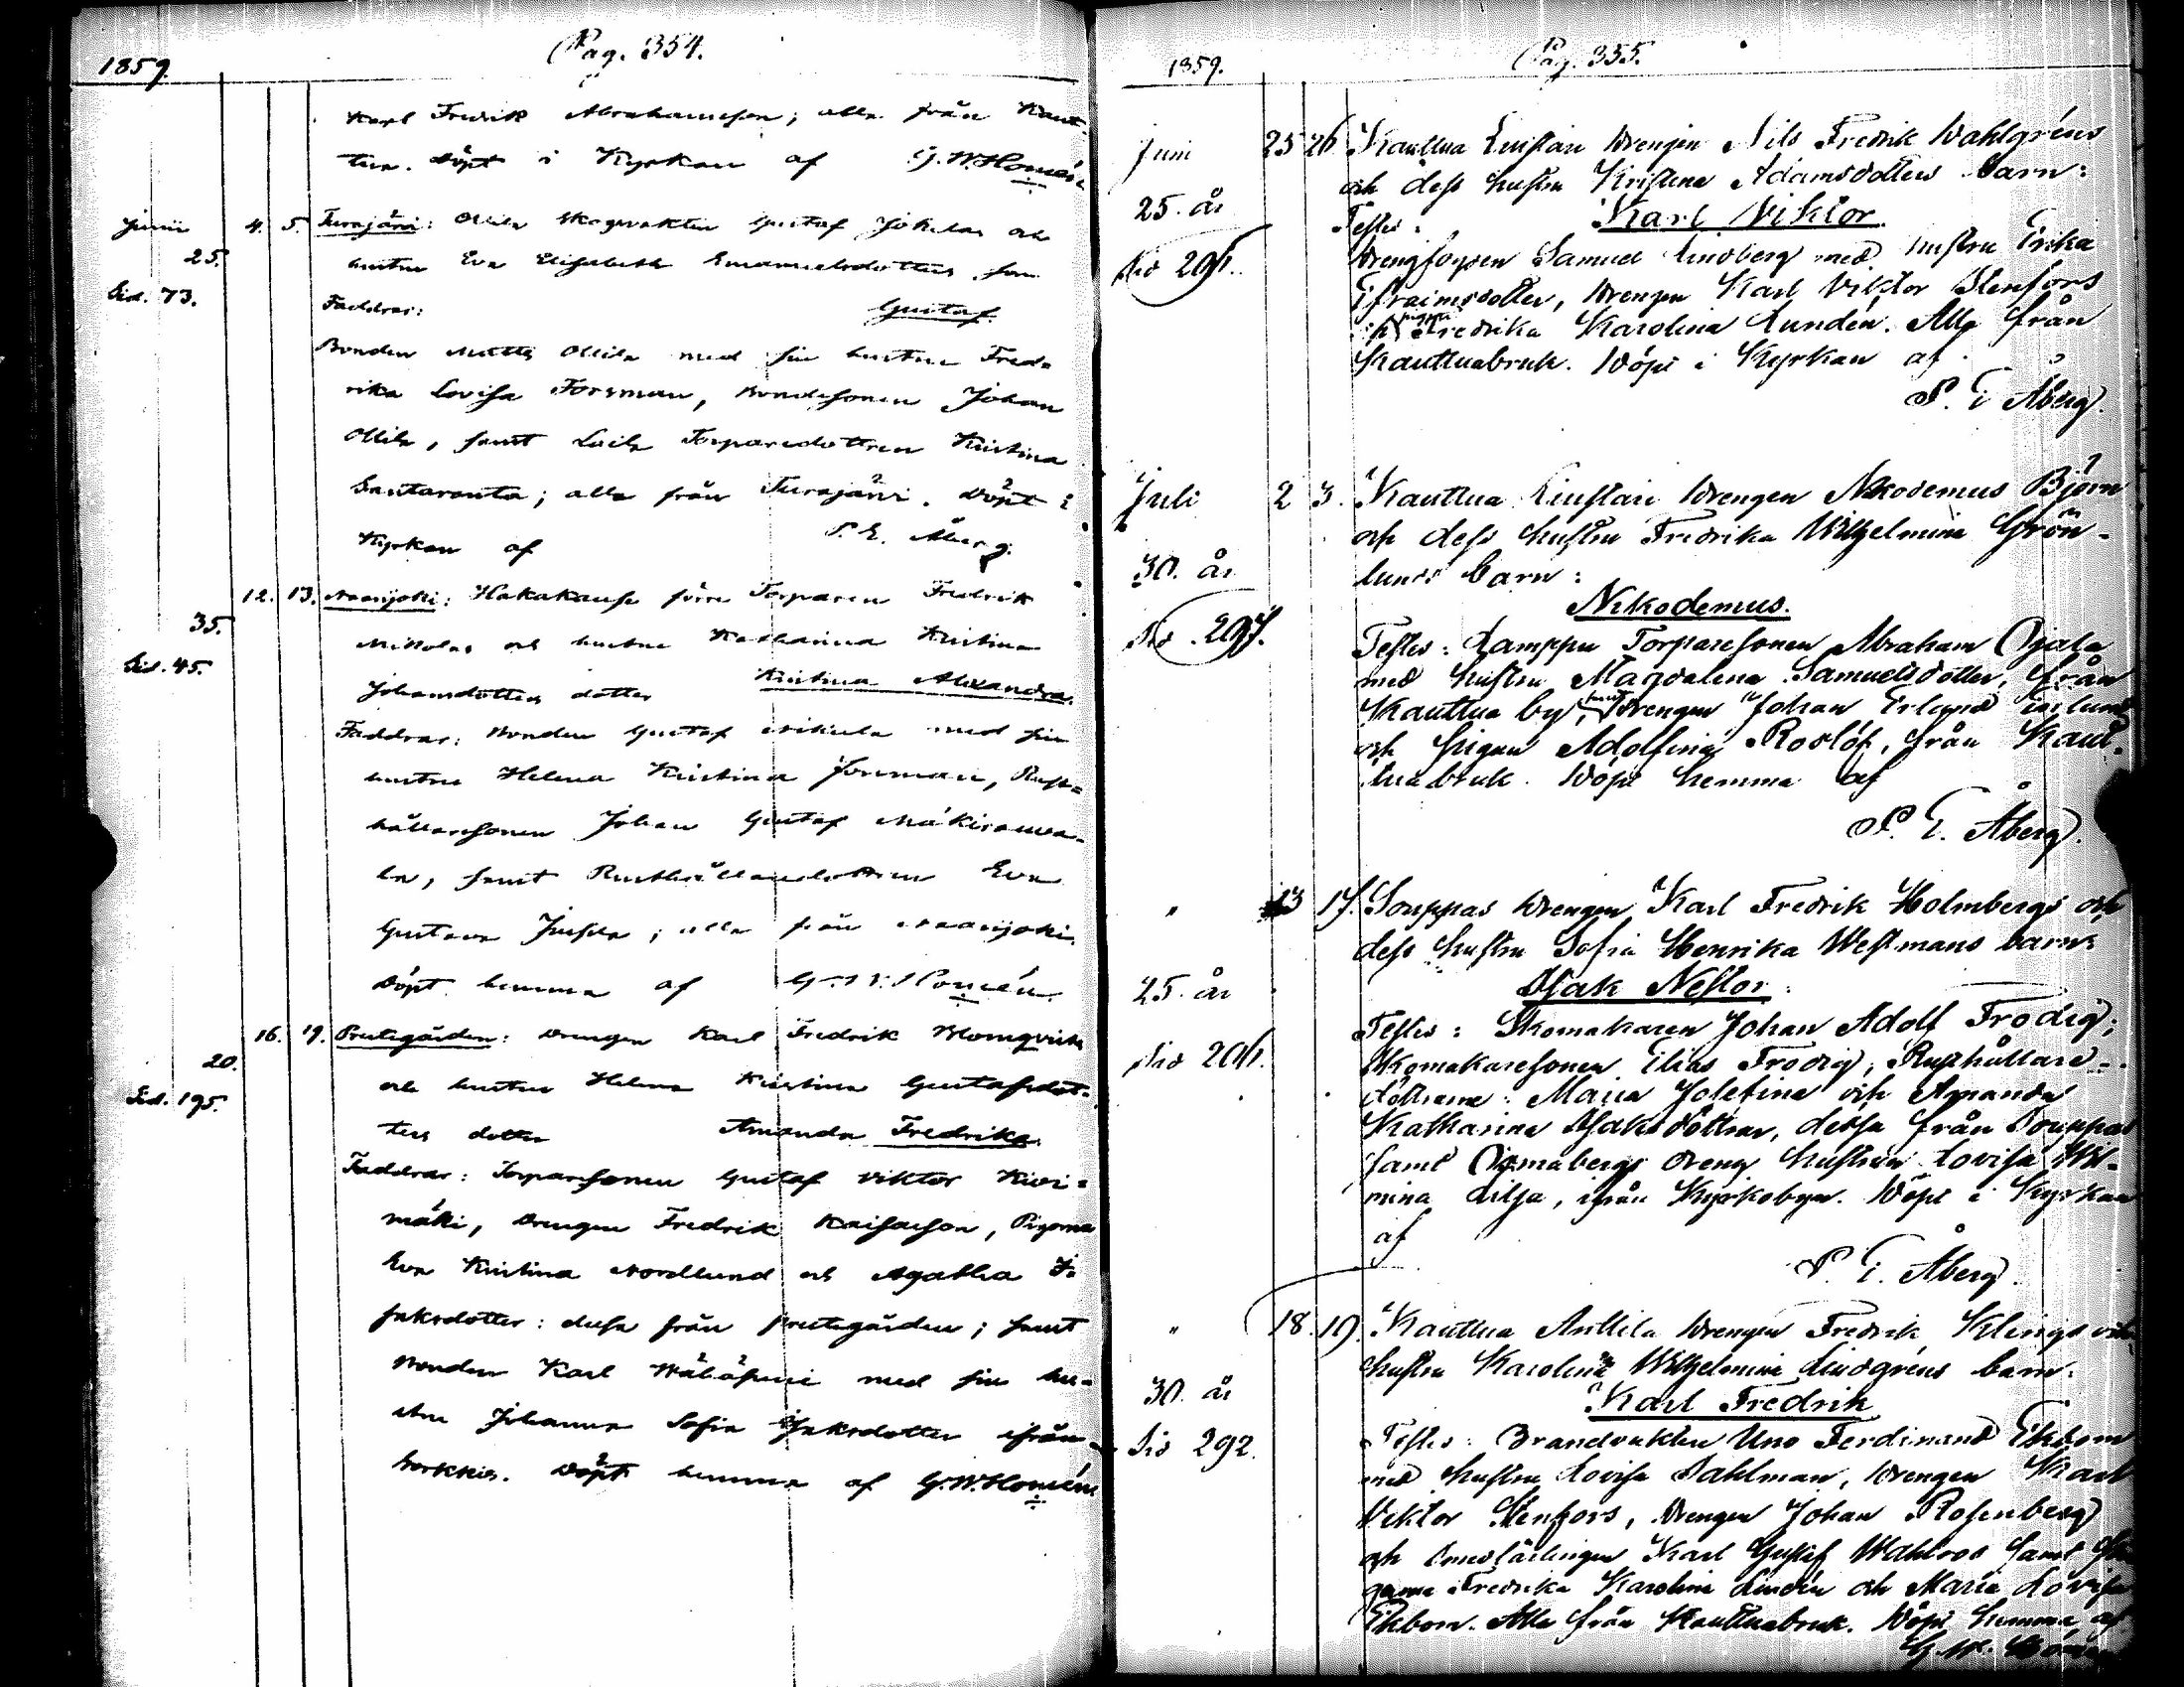 Pag. 354.
1859.
Karl Fredrik Abrahamsson; alla från Kaut-
tua. Döpt i Kyrkan af G. W. Homén
Junii 4. 5. Turajärvi: Ollila Skogvakten Gustaf Jokelas och
25.
hustru Eva Elisabeth Emanuelsdotters son
Sid. 73.
Faddrar: Gustaf.
Bonden Matts Ollila med sin hustru Fred-
rika Lovisa Forsman, Bondesonen Johan
Ollila, samt Laila Torparedottren Kristina
Santaranta; alla från Turajärvi. Döpt i
Kyrkan af P. E. Åberg.
12. 13. Naarijoki: Hakakausa förre Torparen Fredrik
35.
Mikkolas och hustru Katharina Kristina
Sid. 45.
Johansdotters dotter Kristina Alexandra.
Faddrar: Bonden Gustaf Mikula med sin
hustru Helena Kristina Forsman, Rust-
hållaresonen Johan Gustaf
la, samt Rusthållaredottren Eva
Gustava Jussila; alla från Naarijoki.
Döpt hemma af G. W. Homén.
16. 19. Prestgården: Drengen Karl Fredrik Blomqvists
20.
och hustrus Helena Kristina Gustafsdot-
Sid. 195.
ters dotter Amanda Fredrika.
Faddrar: Torparesonen Gustaf Viktor Kivi-
mäki, Drengen Fredrik Kaisasson, Pigorna
Eva Kristina Nordlund och Agatha I-
saksdotter: dessa från prestgården; samt
Bonden Karl Wähäpeni med sin hu-
stru Johanna Sofia Isaksdotter ifrån
Sorkkis. Döpt hemma af G. W. Homén
Pag. 355.
1859.
Juni 25 26 Kauttua Luistari Drengen Nils Fredrik Wahlgréns
och dess hustru Kristina Adamsdotters barn:
25. år
Testes: Karl Viktor.
Drengfogden Samuel Lindberg med hustru Erika
Sid 291.
Efraimsdotter, Drengen Karl Viktor Stenfors
och pigan Fredrika Karolina Lundén. Alla från
Kauttuabruk. Döpt i Kyrkan af
P. E. Åberg.
Juli 2 3. Kauttua Luistari Drengen Nikodemus Björn
och dess hustru Fredrika Wilhelmina Grön-
30. år
lunds barn:
Nikodemus.
Sid. 297.
Testes: Lamppu Torparesonen Abraham Ojala
med hustru Magdalena Samuelsdotter, från
Kauttua by, samt Drengen Johan Erland
och pigan Adolfina Roslöf, från Kaut-
tuabruk. Döpt hemma af
P. E. Åberg.
" 13 17. Souppas Drengen Karl Fredrik Holmbergs och
dess hustru Sofia Henrika Westmans barn:
25. år
Isak Nestor:
Testes: Skomakaren Johan Adolf Frodig;
Sid 206.
Skomakaresonen Elias Frodig; Rusthållare-
döttrarna: Maria Josefina och Amanda
Katharina Isaksdöttrar, dessa från Souppas
samt Ojmabergs dreng hustrun Lovisa Wil-
mina Lilja, ifrån Kyrkobyn. Döpt i Kyrkan
af
P. E. Åberg.
" 18. 19. Kauttua Anttila Drengen Fredrik Klings och
hustru Karolina Wilhelmina Lindgréns barn:
30. år
Karl Fredrik
Sid 292.
Testes: Brandvakten Uno Ferdinand Ekbom
med hustru Lovisa Dahlman, Drengen Karl
Viktor Stenfors, Drengen Johan Rosenberg
och Karl Gustaf Wahlroos samt pi-
gorna Fredrika Karolina Lundén och Maria Lovisa
Ekbom. Alla från Kauttuabruk. Döpt hemma af
G. W. Homén